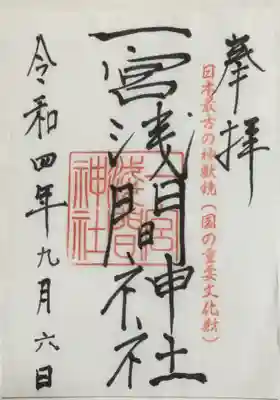 奉拝
日本最古の神獣鏡(国の重要文化財)
一宮浅間神社
一宮
淺間
神社
令和四年九月六日